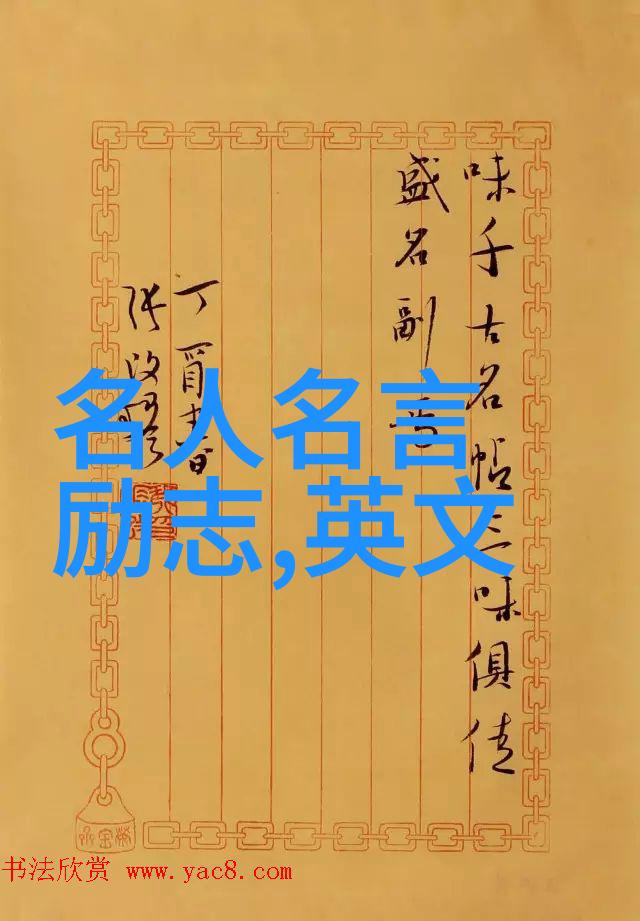 味千古名帖三味俱佳
盛名副
丁酉
名人名言
励志,英文
书法欣赏 www.yac8.com